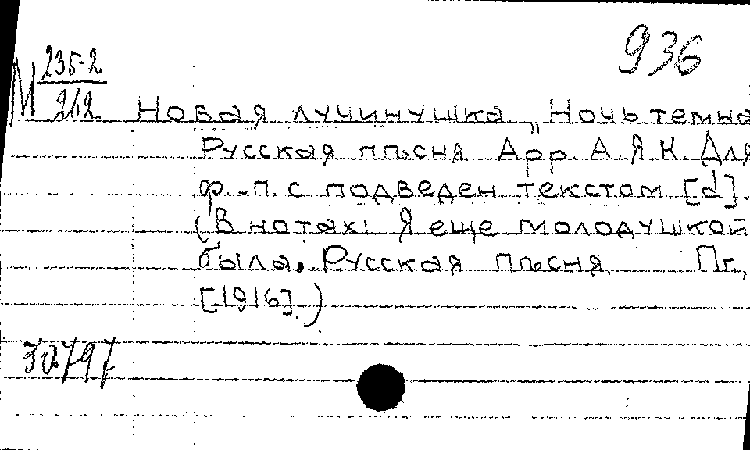 936
М 235-2
262
Новая лучинушка „Ночь темна
Русская пѣсня Арр. А.Я.К. Для
ф.-п. с подведен текстом [d].
(В нотах: Я еще молодушкой
была. Русская пѣсня Пг.,
[1916].)
30797